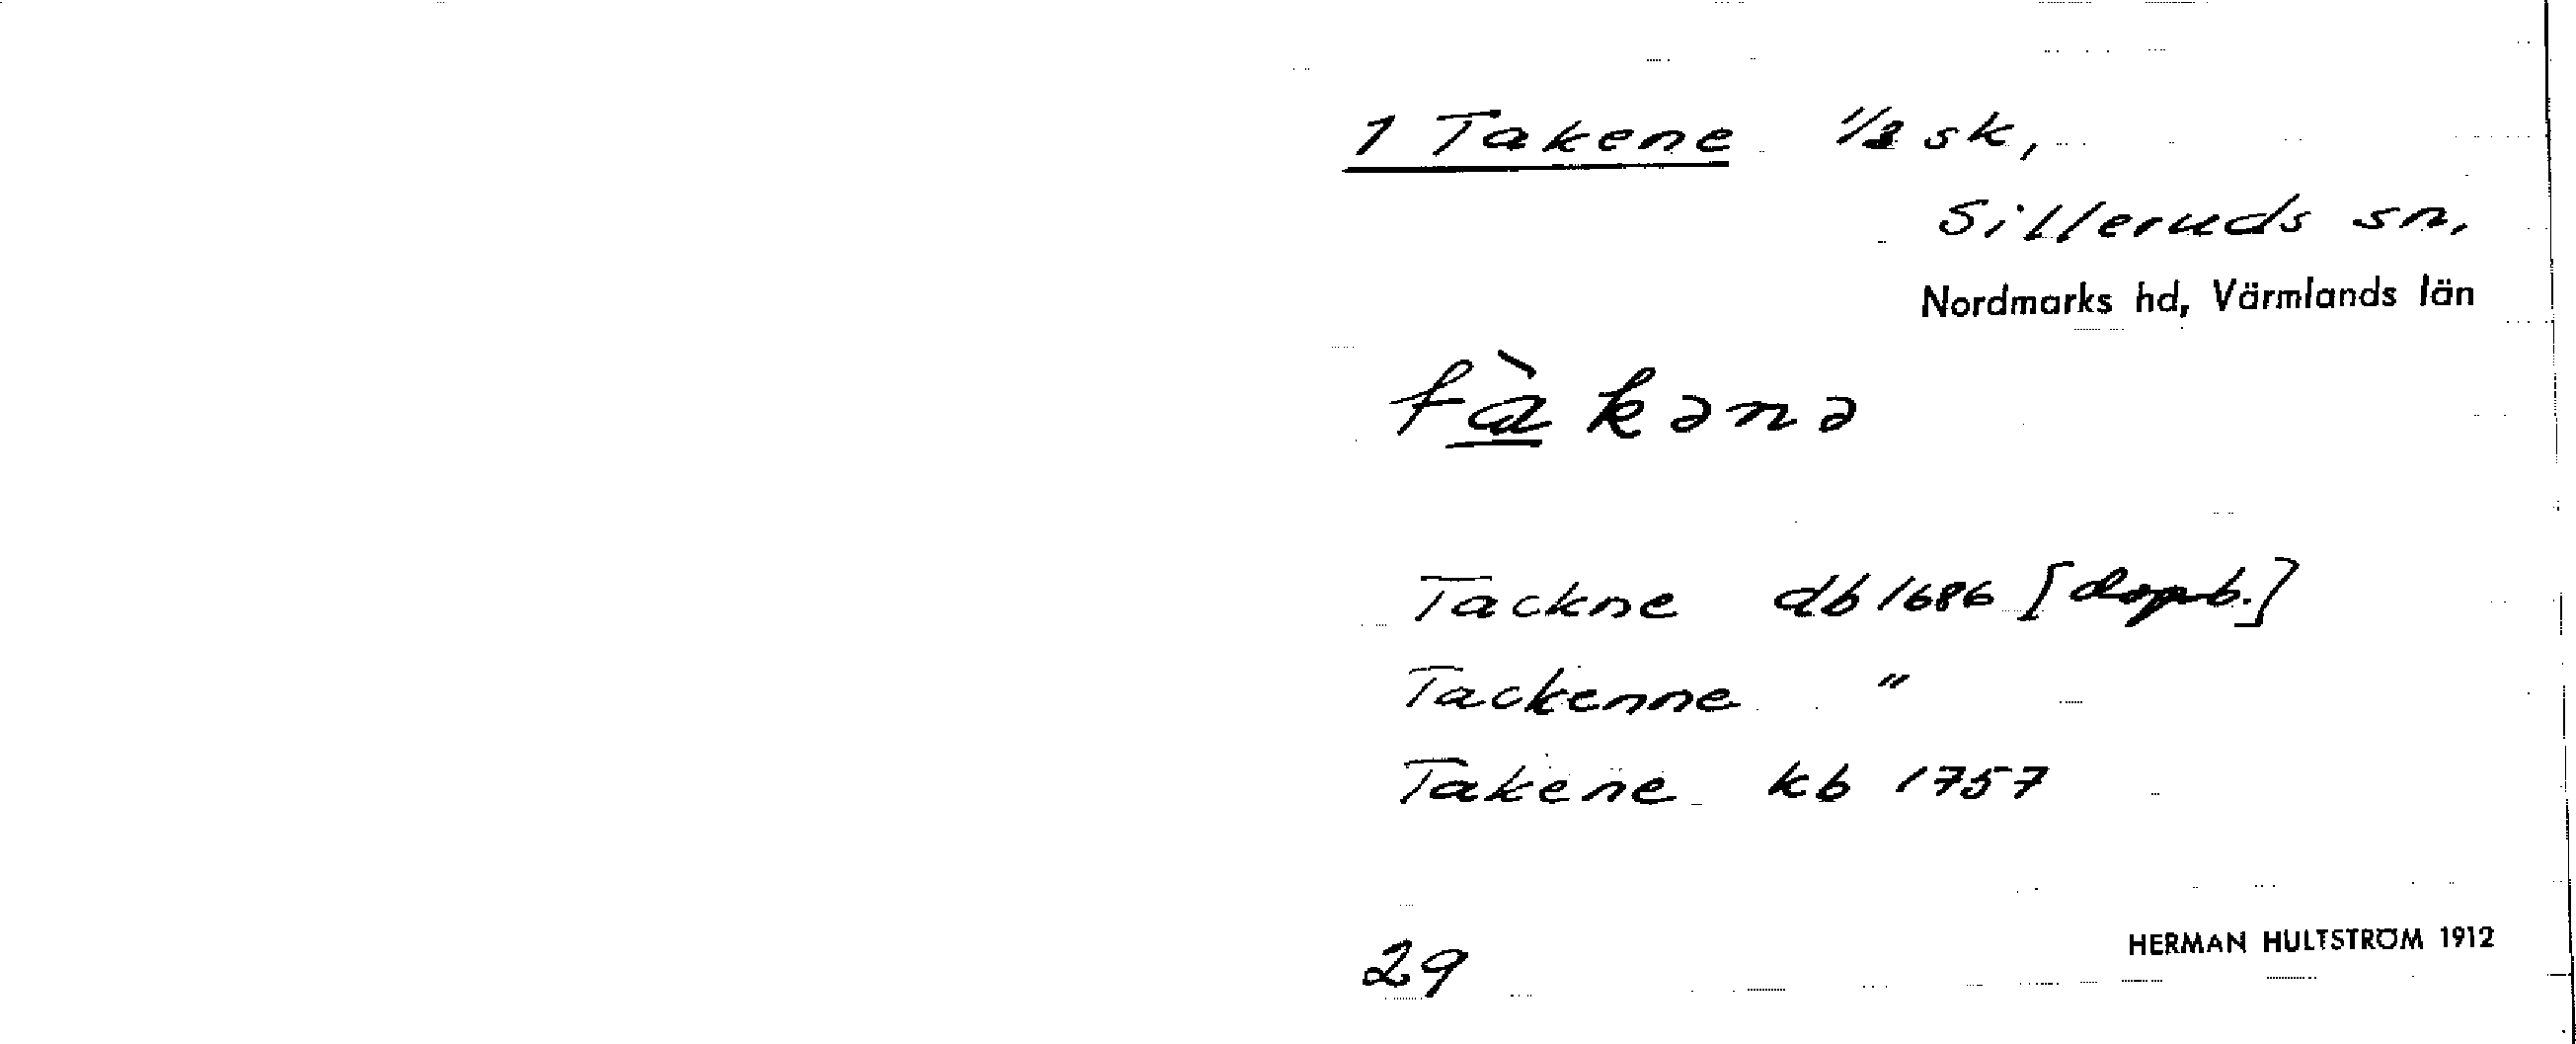 1 Takene 1/2 sk,
Silleruds sn.
Nordmarks hd, Värmlands län
tàkənə
Tackne db 1686 [dopb.]
Tackenne "
Takene kb 1757
29
HERMAN HULTSTRÖM 1912